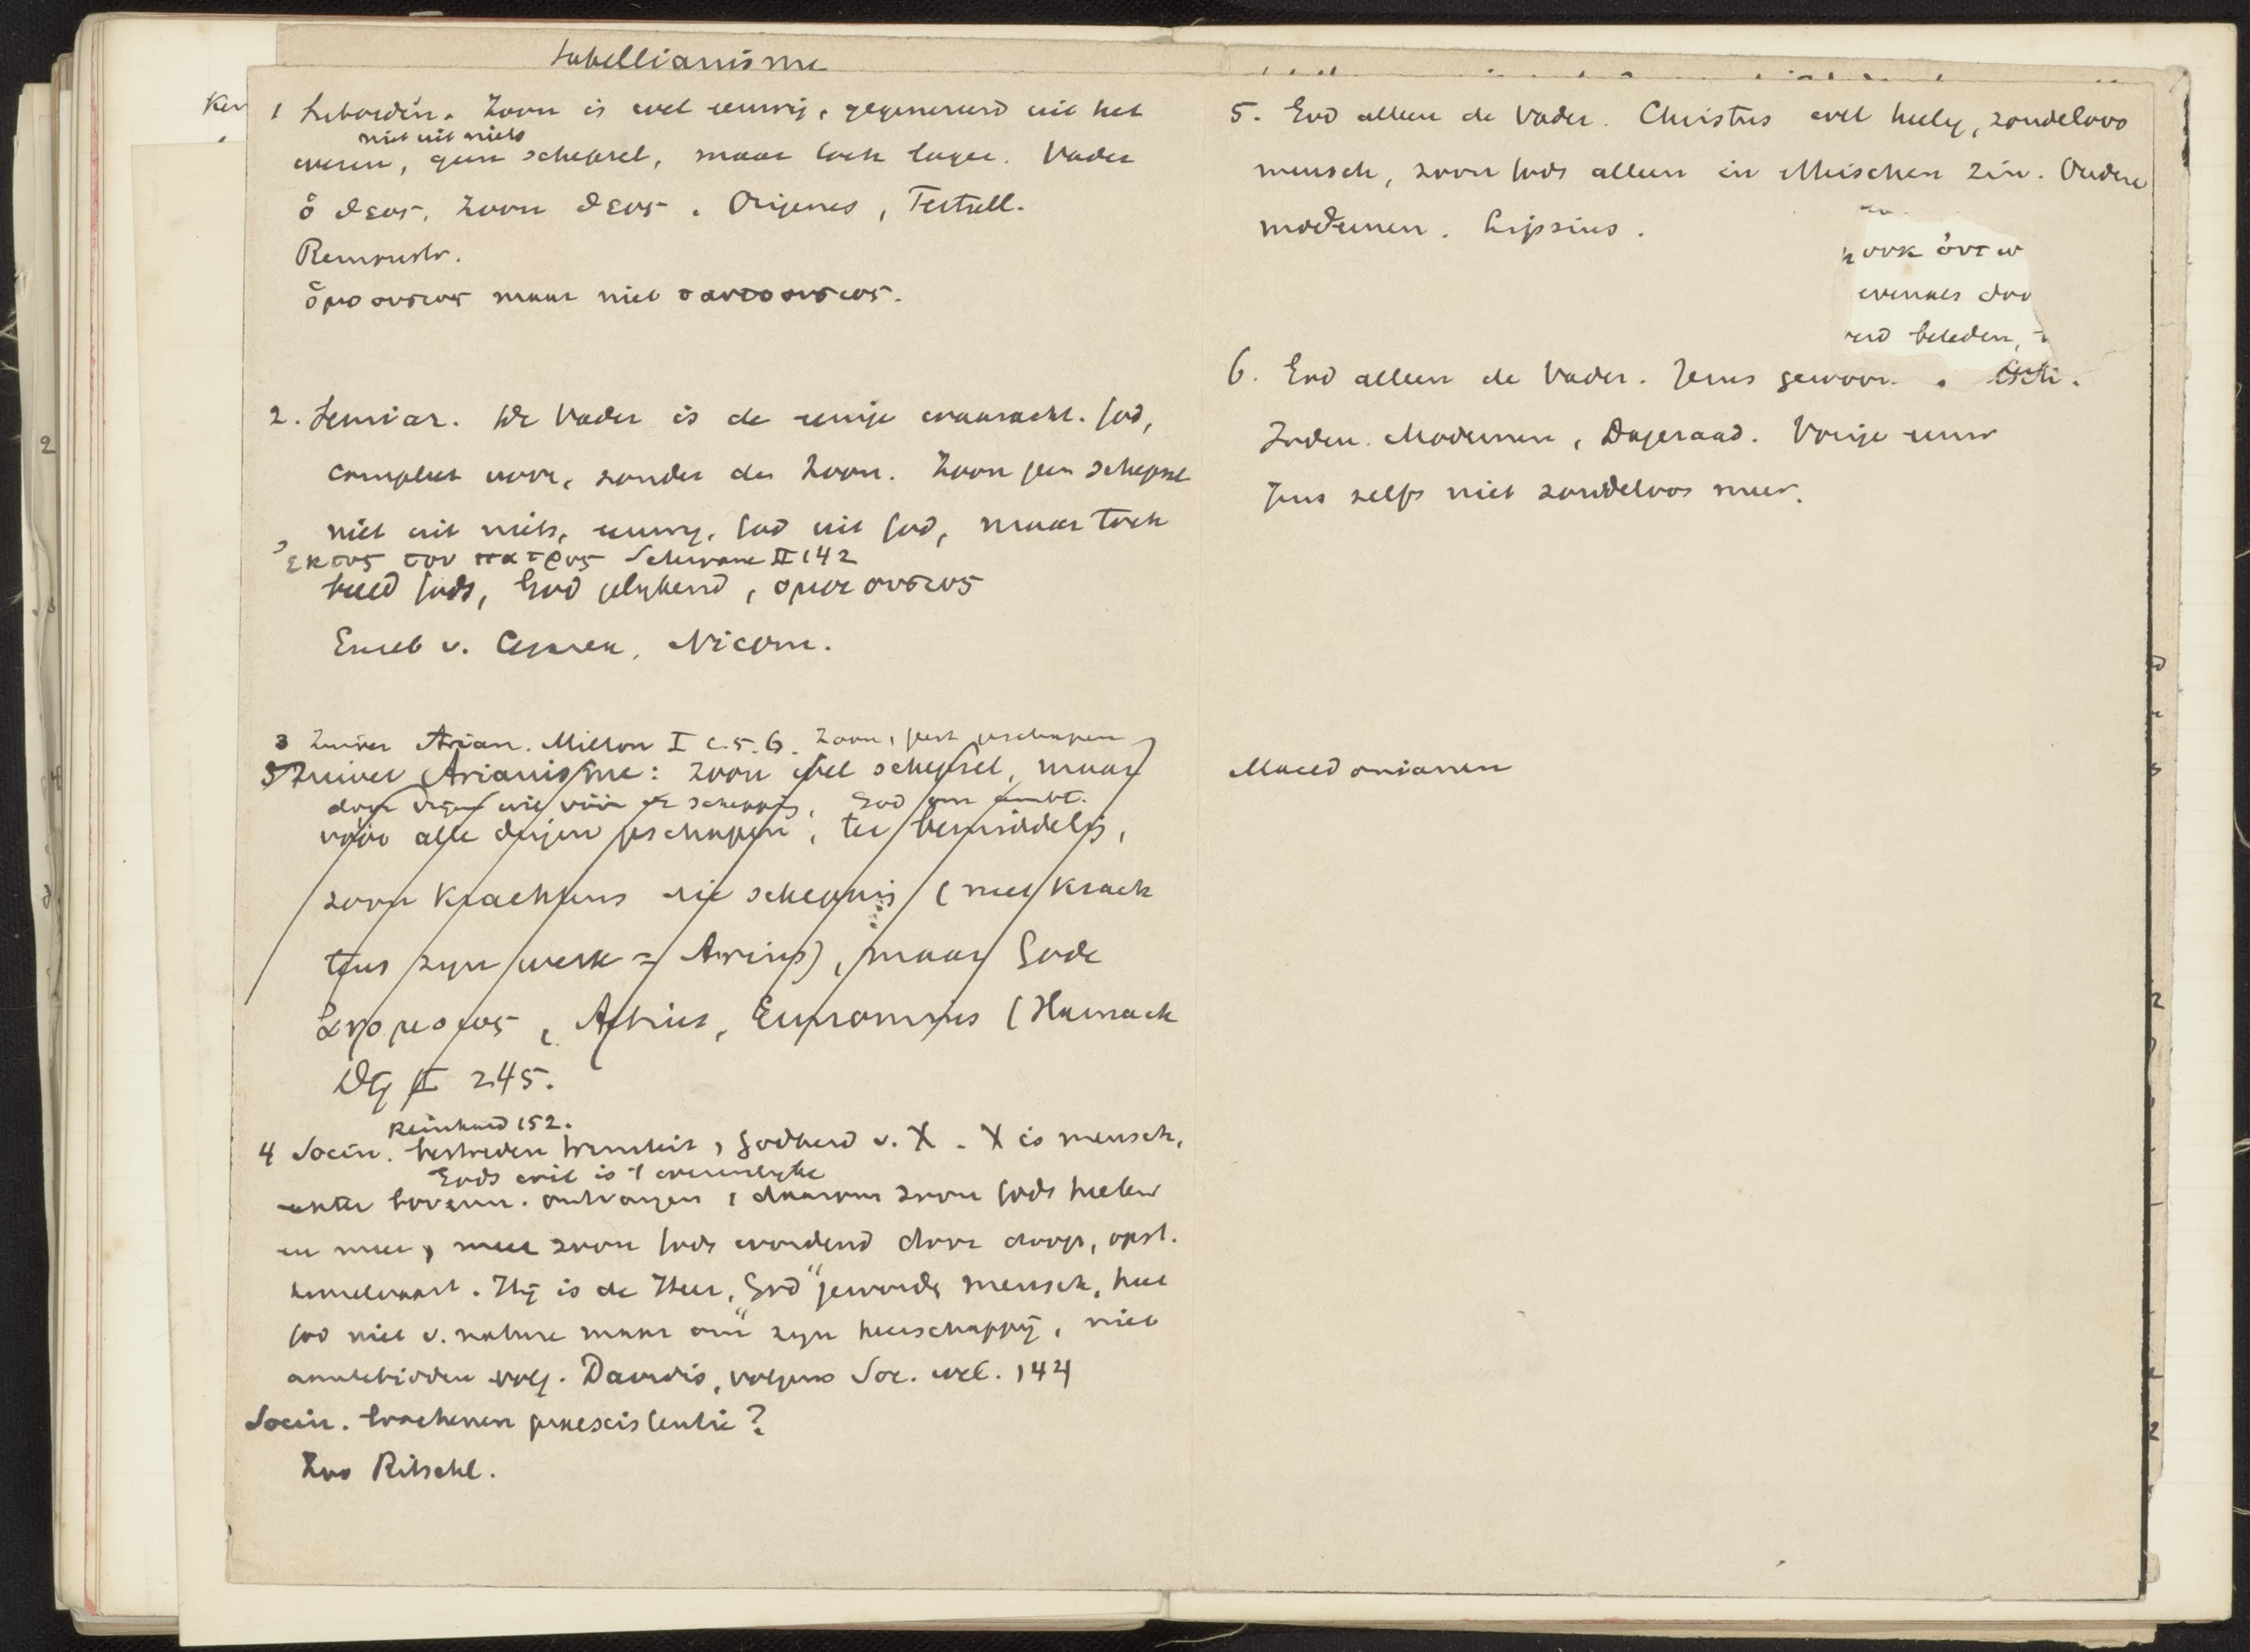 Sabellianisme
Ker
1 Subordin. Zoon is wel eeuwig, gegenereerd uit het
niet uit niets
wezen, geen schepsel, maar toch lager. Vader
ὁ θεος, Zoon θεος. Origenes, Tertull.
Remonstr.
ὁμοουσιος maar niet ταυτοουσιος.
2. Semiar. De Vader is de eenige waaracht. God,
compleet voor, zonder den Zoon. Zoon geen schepsel
niet uit niets, eeuwig, God uit God, maar toch
ἐκτος του πατρος Schwane II 142
beeld Gods, God gelykend, ομοιουσιος
Euseb v. Cesarea, Nicom.
3 Zuiver Arian. Milton I c. 5. 6. Zoon, eerst geschapen
3 Zuiver Arianisme: Zoon wel schepsel, maar
door vrijen wil vóór de schepping, God om ambt.
vóór alle dingen geschapen, ter bemiddelg,
zoon krachtens die schepping (niet krach
tens zyn werk = Arius), maar Gode
ἀνομοιος, Aetius, Eunomius (Harnack
DG II 245.
Reinhard 152.
4 Socin. bestreden triniteit, godheid v. X. X is mensch,
Gods wil is 't wezenlyke
echter bovenn. ontvangen, daarom zoon Gods heeten
en meer, meer zoon Gods wordend door doop, opst.
hemelvaart. Hij is de Heer, "God" geworden mensch, heet
God niet v. nature maar om zyn heerschappij, niet
aantebidden volg. Davidis, volgens Soc. wel. 144
Socin. loochenen praeexistentie?
Zoo Ritschl.
5. God alleen de Vader. Christus wel heilig, zondeloos
mensch, zoon Gods alleen in ethischen zin. Oudere
modernen. Lipsius.
ook ὀντω
evenals doo
erd beleden,
6. God alleen de Vader. Jezus gewoon
Joden. Modernen, Dageraad. Vorige eeuw
Jezus zelfs niet zondeloos meer.
Macedonianen